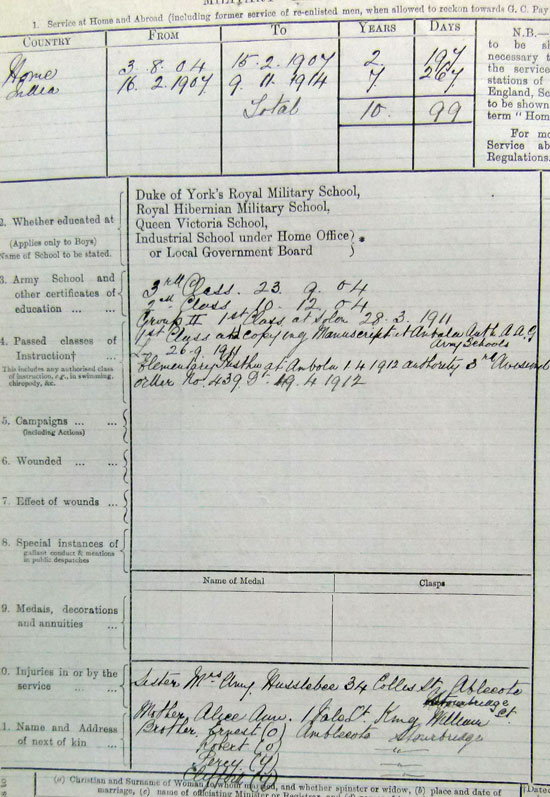 1. Service at Home and Abroad (including former service of re-enlisted men, when allowed to reckon towards G. C. Pay
COUNTRY FROM TO YEARS DAYS
Home 3. 8. 04 15. 2. 1907 2. 197
India 16. 2. 1907 9. 11. 1914 7. 267
Total 10. 99
N.B.—
to be sh
necessary t
the service
stations of
England, Sc
to be shown
term "Hom
For mo
Service ab
Regulations.
2. Whether educated at
(Applies only to Boys)
Name of School to be stated.
Duke of York's Royal Military School,
Royal Hibernian Military School,
Queen Victoria School,
Industrial School under Home Office
or Local Government Board
3. Army School and
other certificates of
education ... ...
3rd Class. 23. 9. 04
2nd Class. 10. 12. 04
Group II 1st Class at Solon 28. 3. 1911
4. Passed classes of
Instruction†
This includes any authorised class
of instruction, e.g., in swimming,
chiropody, &c.
1st Class copying Manuscript at Umbala Auth A.A.G
Army Schools
26. 9. 1911
Elementary at 1. 4 1912 authority 3rd
order No. 439 Dt. 19. 4 1912
5. Campaigns ... ...
(including Actions)
6. Wounded ... ...
7. Effect of wounds ...
8. Special instances of
gallant conduct & mentions
in public despatches
Name of Medal Clasps
9. Medals, decorations
and annuities ...
0. Injuries in or by the
service ... ...
Sister Mrs Amy Husslebee 34 Collis St, Amblecote
Stourbridge
1. Name and Address
of next of kin ...
Mother Alice Ann. 1 King William St.
Brother Ernest (o) Amblecote Stourbridge
Robert (o)
Percy (y)
Clifford (y)
(a) Christian and Surname of Woman to whom married, and whether spinster or widow, (b) place and date of
marriage, (c) name of officiating Minister or Registrar, and